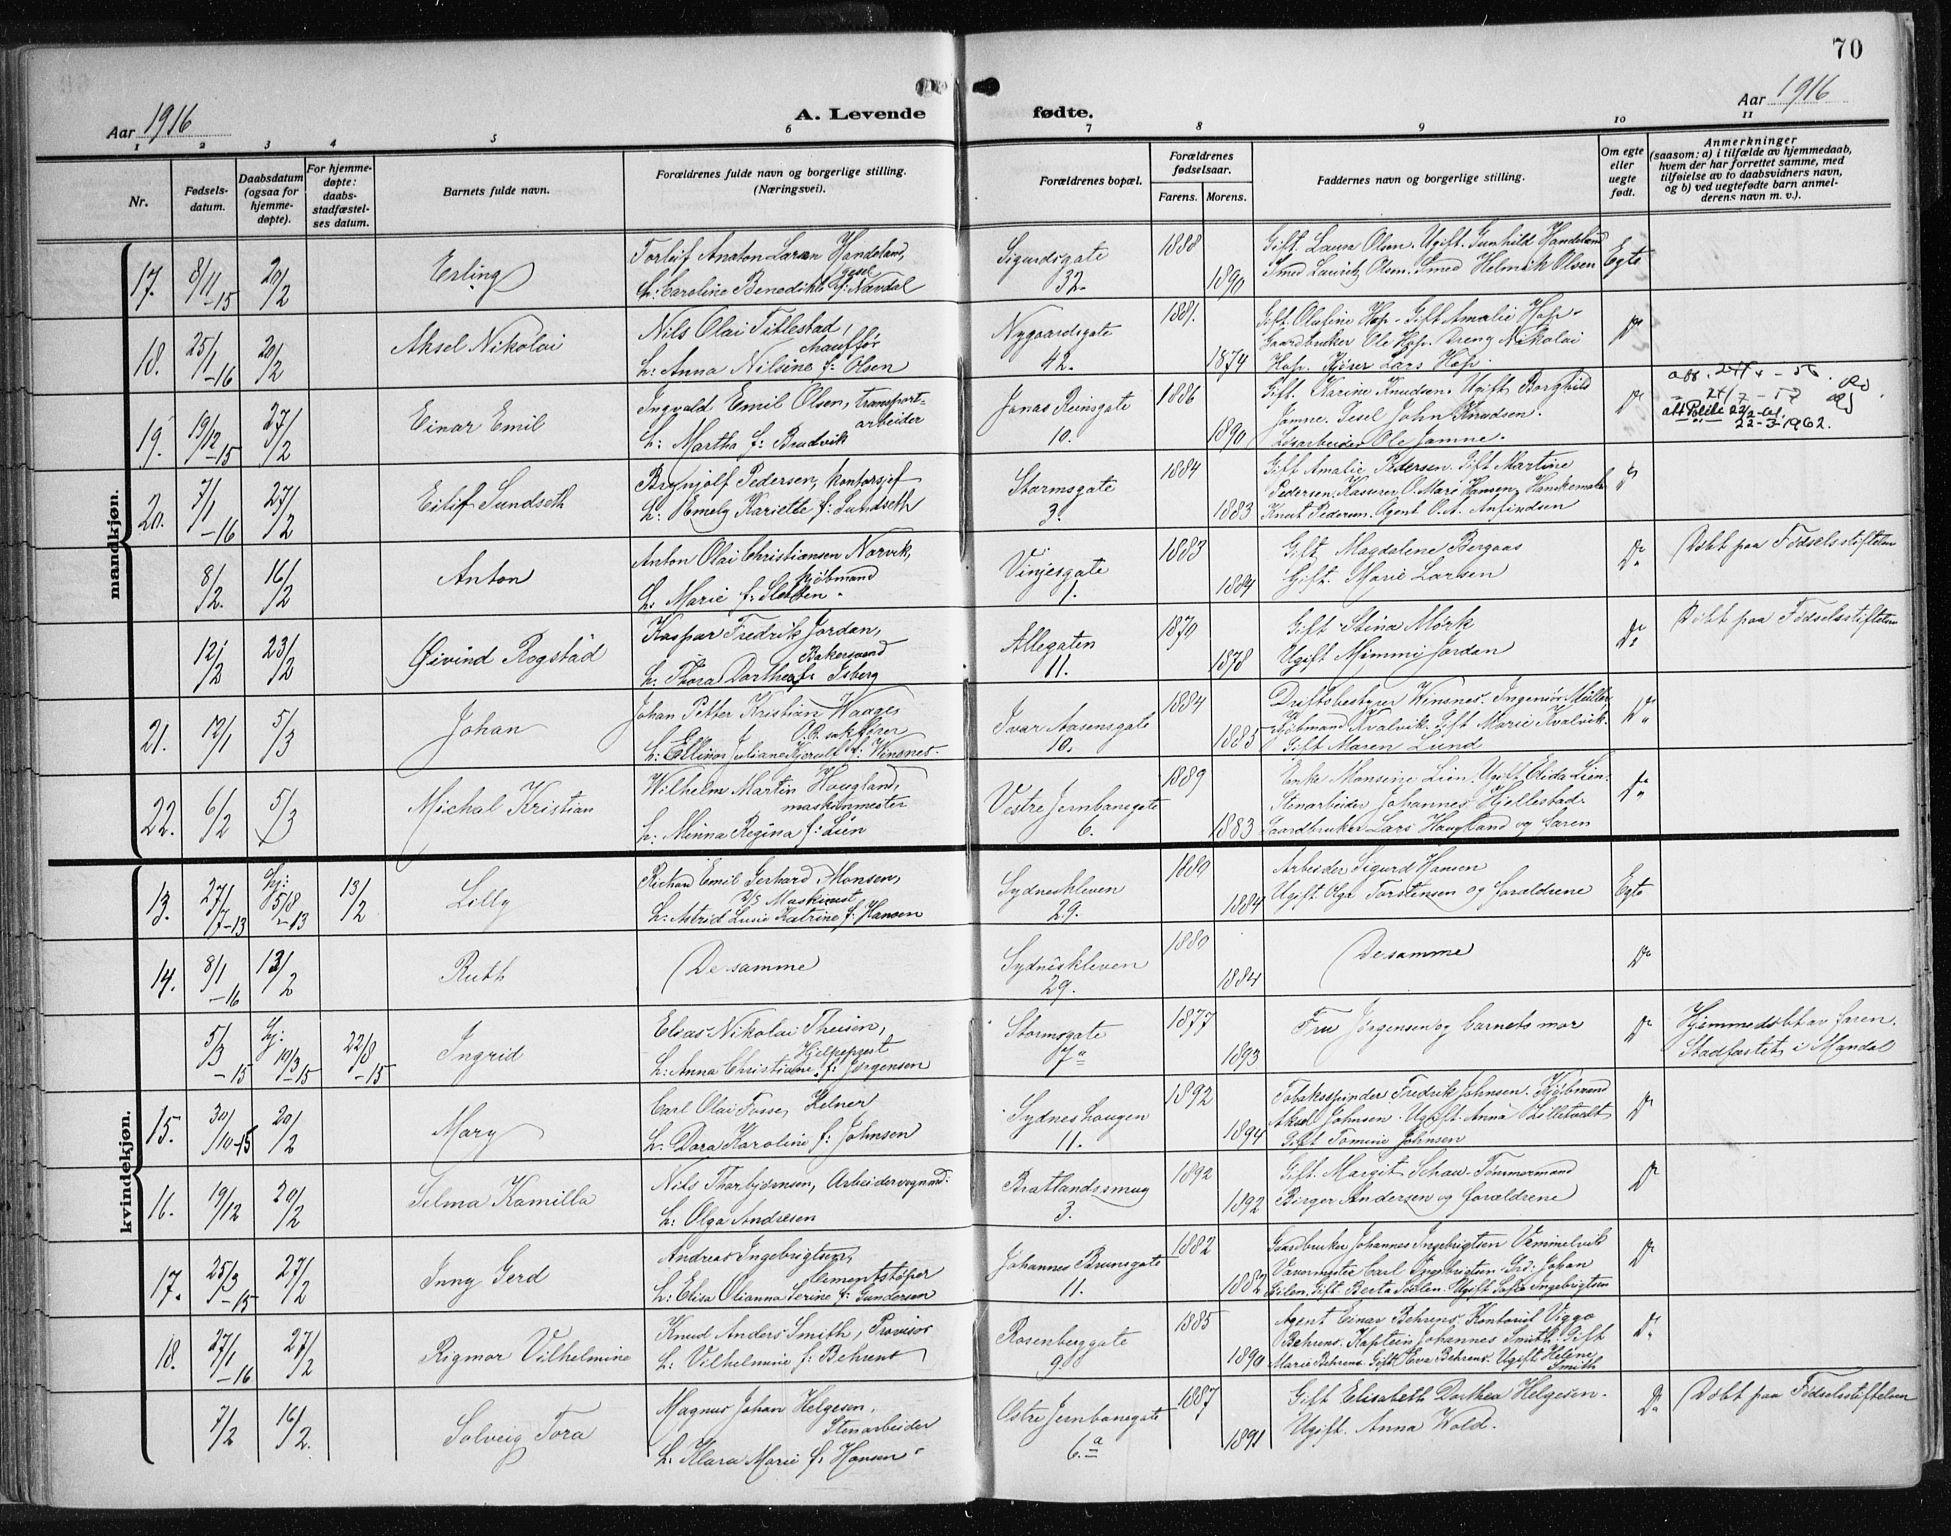 70
Aar 1916
A. Levende fødte.
Aar 1916
1 2 3 4 5 6 7 8 9 10 11
Nr.
Fødsels-
datum.
Daabsdatum
(ogsaa for
hjemme-
døpte).
For hjemme-
døpte:
daabs-
stadfæstel-
ses datum.
Barnets fulde navn.
Forældrenes fulde navn og borgerlige stilling.
(Næringsvei).
Forældrenes bopæl.
Forældrenes
fødselsaar.
Farens. Morens.
Faddernes navn og borgerlige stilling.
Om egte
eller
uegte
født.
Anmerkninger
(saasom: a) i tilfælde av hjemmedaab,
hvem der har forrettet samme, med
tilføielse av to daabsvidners navn,
og b) ved uegtefødte barn anmel-
derens navn m. v.).
mandkjøn.
17. 8/11-15 20/2 Erling
Torleif Anaton Laran Handeland,
h: Caroline Benedikte f: Nævdal
Sigurdsgate
32.
1888 1890
Gift. Laura Olsen. Ugift. Gunhild Handeland
Smed Lauritz Olsen. Smed Helmik Olsen
Egte
18. 25/1-16 20/2 Aksel Nikolai
Nils Olai Titlestad,
chauffør
h: Anna Nilsine f: Olsen
Nygaardsgate
42.
1881. 1874
Gift. Olufine Hop. Gift Amalie Hop.
Gaardbruker Ole Hop. Dreng Nikolai
Hop. Kjører Lars Hop
Do
19. 19/12-15 27/2 Einar Emil
Ingvald Emil Olsen, transport-
arbeider
h: Martha f: Bradvik
Jonas Reinsgate
10.
1886 1890
Gift. Karine Knudsen. Ugift Borghild
Jamne. John Knudsen.
Ole Jamne.
Do
22-3-1962.
20. 7/1-16 27/2 Eilif Sundseth
Brynjolf Pedersen, kontorsjef
h: Emely Kariette f: Sundseth
Stormsgate
3.
1884 1883
Gift Amalie Pedersen. Gift Martine
Pedersen. Kasserer O. Mare Hansen. Hanskemaker
Knut Pedersen. Agent O. A. Anfindsen
Do
8/2. 16/2 Anton
Anton Olai Christiansen Norvik,
kjøbmand
h: Marie f: Sletten.
Vinjesgate
1.
1883 1884
Gift. Magdalene Bergaas
Gift. Marie Larsen
Do
Døbt paa Fødselsstiftelsen
12/2 23/2 Øivind Rogstad
Kaspar Fredrik Jordan,
Bakersvend
h: Thora Dorthea f: Isberg
Allegaten
11.
1870 1878
Gift Stina Mörk
Ugift Mimmi Jordan
Do
Døbt paa Fødselsstiftelsen
21. 12/1 5/3 Johan
Johan Petter Kristian Waage
O.R. sakfører
h: Ellinor Juliane Kjerulf f: Winsnes.
Ivar Aasensgate
10.
1884 1885
Driftsbestyrer Winsnes. Ingeniør Müller
Kjøbmand Kvalvik. Gift Marie Kvalvik.
Gift Maren Lund
Do
22. 6/2 5/3 Michal Kristian
Wilhelm Martin Haugland,
maskinmester
h: Minna Regina f: Lien
Vestre Jernbanegate
6.
1889 1883
Enke Monsine Lien. Ugift Elida Lien.
Stenarbeider Johannes Hjellestad.
Gaardbruker Lars Haugland og faren
Do
kvindekjøn.
13. 27/7-13 Hj: 5/8-13 13/2 Lilly
Richard Emil Gerhard Monsen,
D/S Maskinist
h: Astrid Lusie Katrine f: Hansen
Sydneskleven
29.
1880 1884
Arbeider Sigurd Hansen
Ugift Olga Torstensen og forældrene
Egte
14. 8/1-16 13/2 Ruth
De samme
Sydneskleven
29.
1880 1884
De samme
Do
5/3-15 Hj: 19/3-15 22/8-15 Ingrid
Elias Nikolai Theisen,
Hjelpeprest
h: Anna Christiane f: Jørgensen
Stormsgate
7a
1877 1893
Fru Jørgensen og barnets mor
Do
Hjemmedøbt av faren.
Stadfæstet i Mandal
15. 30/10-15 20/2 Mary
Carl Olai Fosse, Kelner
h: Dora Karoline f: Johnsen
Sydneshaugen
11.
1892 1894
Tobakspinder Fredrik Johnsen. Kjøbmand
Aksel Johnsen. Ugift. Anna Lilletvedt
Gift Tomine Johnsen
Do
16. 19/12 20/2 Selma Kamilla
Nils Thorbjørnsen, Arbeidervognmd.
h: Olga Andresen
Bratlandssmug
3.
1892 1892
Gift. Margit Schau. Tømmermand
Birger Andersen og forældrene
Do
17. 25/3-15 27/2 Inny Gerd
Andreas Ingebrigtsen,
Sementstøper
h: Elisa Olianna Serine f: Gundersen
Johannes Brunsgate
11.
1882 1882
Gaardbruker Johannes Ingebrigtsen Vemmelvik
Carl Ingebrigtsen. Johan
Gilen. Gift. Berta Solen. Ugift Sofie Ingebrigtsen
Do
18. 27/1-16 27/2 Rigmor Vilhelmine
Knud Anders Smith, Provisor
h: Vilhelmine f: Behrens
Rosenberggate
9.
1885 1890
Agent Einar Behrens. Kontorist Viggo
Behrens. Kaptein Johannes Smith. Gift
Marie Behrens. Gift Eva Behrens. Ugift Helene
Smith
Do
7/2 16/2. Solveig Tora
Magnus Johan Helgesen,
Stenarbeider
h: Klara Marie f: Hansen
Østre Jernbanegate
6.a
1887 1891
Gift Elisabeth Dorthea Helgesen.
Ugift. Anna Wold.
Do
Døbt paa Fødselsstiftelsen